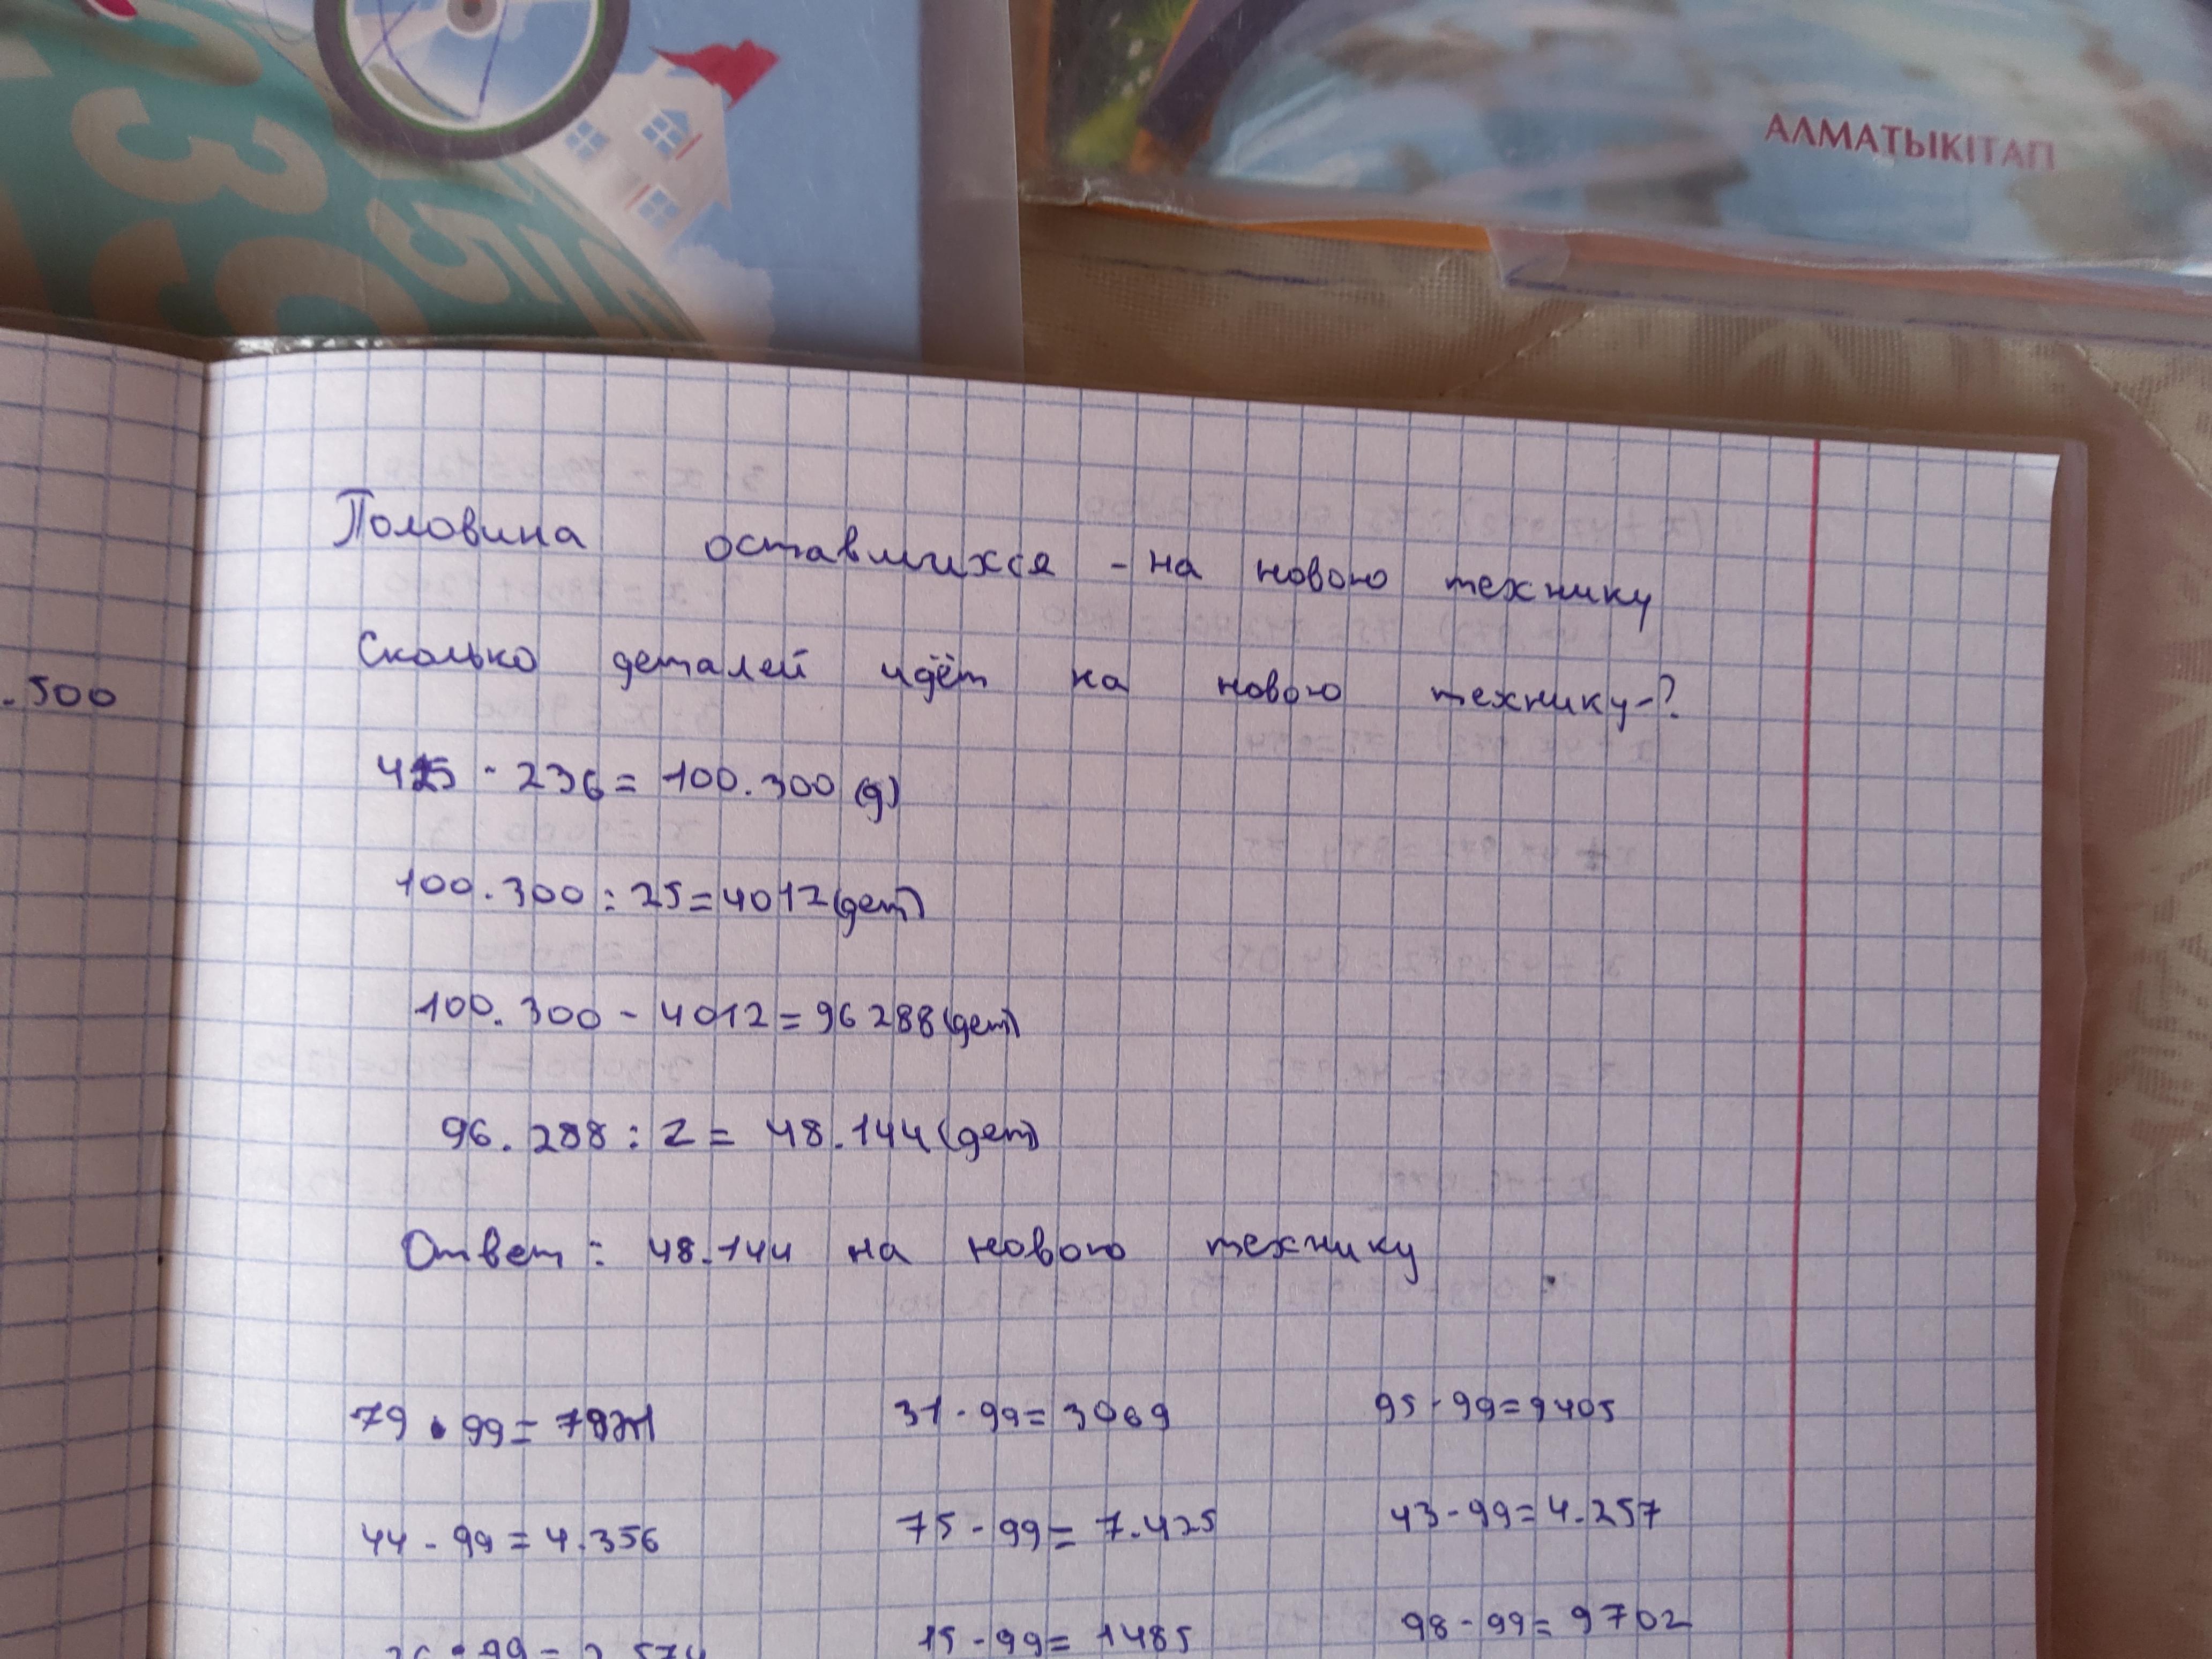 АЛМАТЫКІТАП
Половина оставшихся - на новою технику
Сколько деталей идёт на новою технику-?
.500
425 · 236 = 100.300 (д)
100.300 : 25 = 4012 (дет)
100.300 - 4012 = 96288 (дет)
96.288 : 2 = 48.144 (дет)
Ответ: 48.144 на новою технику
79 · 99 = 7821 31 · 99 = 3069 95 · 99 = 9405
44 · 99 = 4.356 75 · 99 = 7.425 43 · 99 = 4.257
26 · 99 = 2.574 15 · 99 = 1485 98 · 99 = 9702